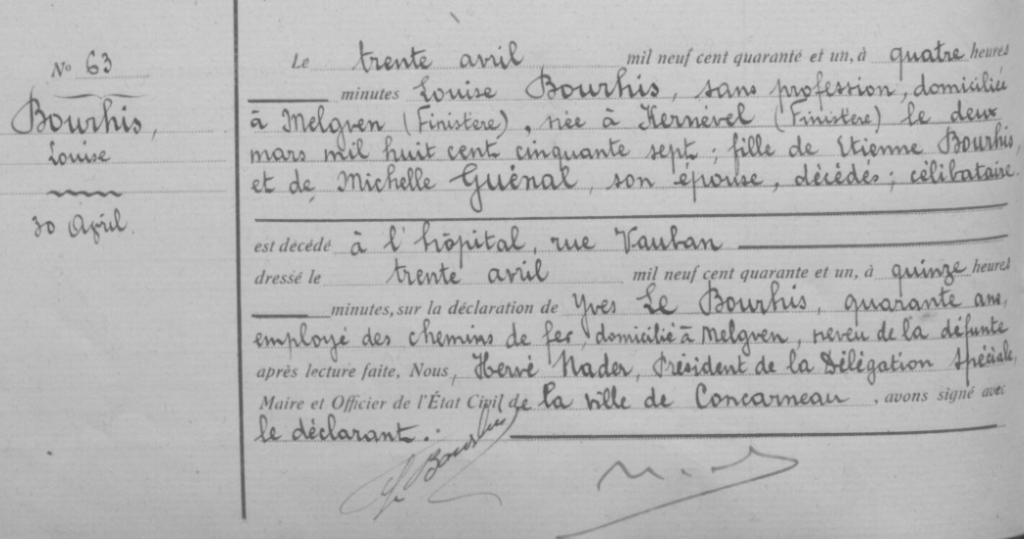 N° 63
Bourhis,
Louise
30 April.
Le trente avril mil neuf cent quarante et un, à quatre heures
minutes Louise Bourhis, sans profession, domiciliée
à Melgven (Finistère), née à Kernével (Finistère) le deux
mars mil huit cent cinquante sept; fille de Etienne Bourhis,
et de Michelle Guénal, son épouse, décédés; célibataire.
est décédé à l'hôpital, rue Vauban
dressé le trente avril mil neuf cent quarante et un, à quinze heures
minutes, sur la déclaration de Yves Le Bourhis, quarante ans,
employé des chemins de fer, domicilié à Melgven, neveu de la défunte
après lecture faite, Nous, Hervé Nader, Président de la Délégation Spéciale,
Maire et Officier de l'État Civil de la ville de Concarneau, avons signé avec
le déclarant.